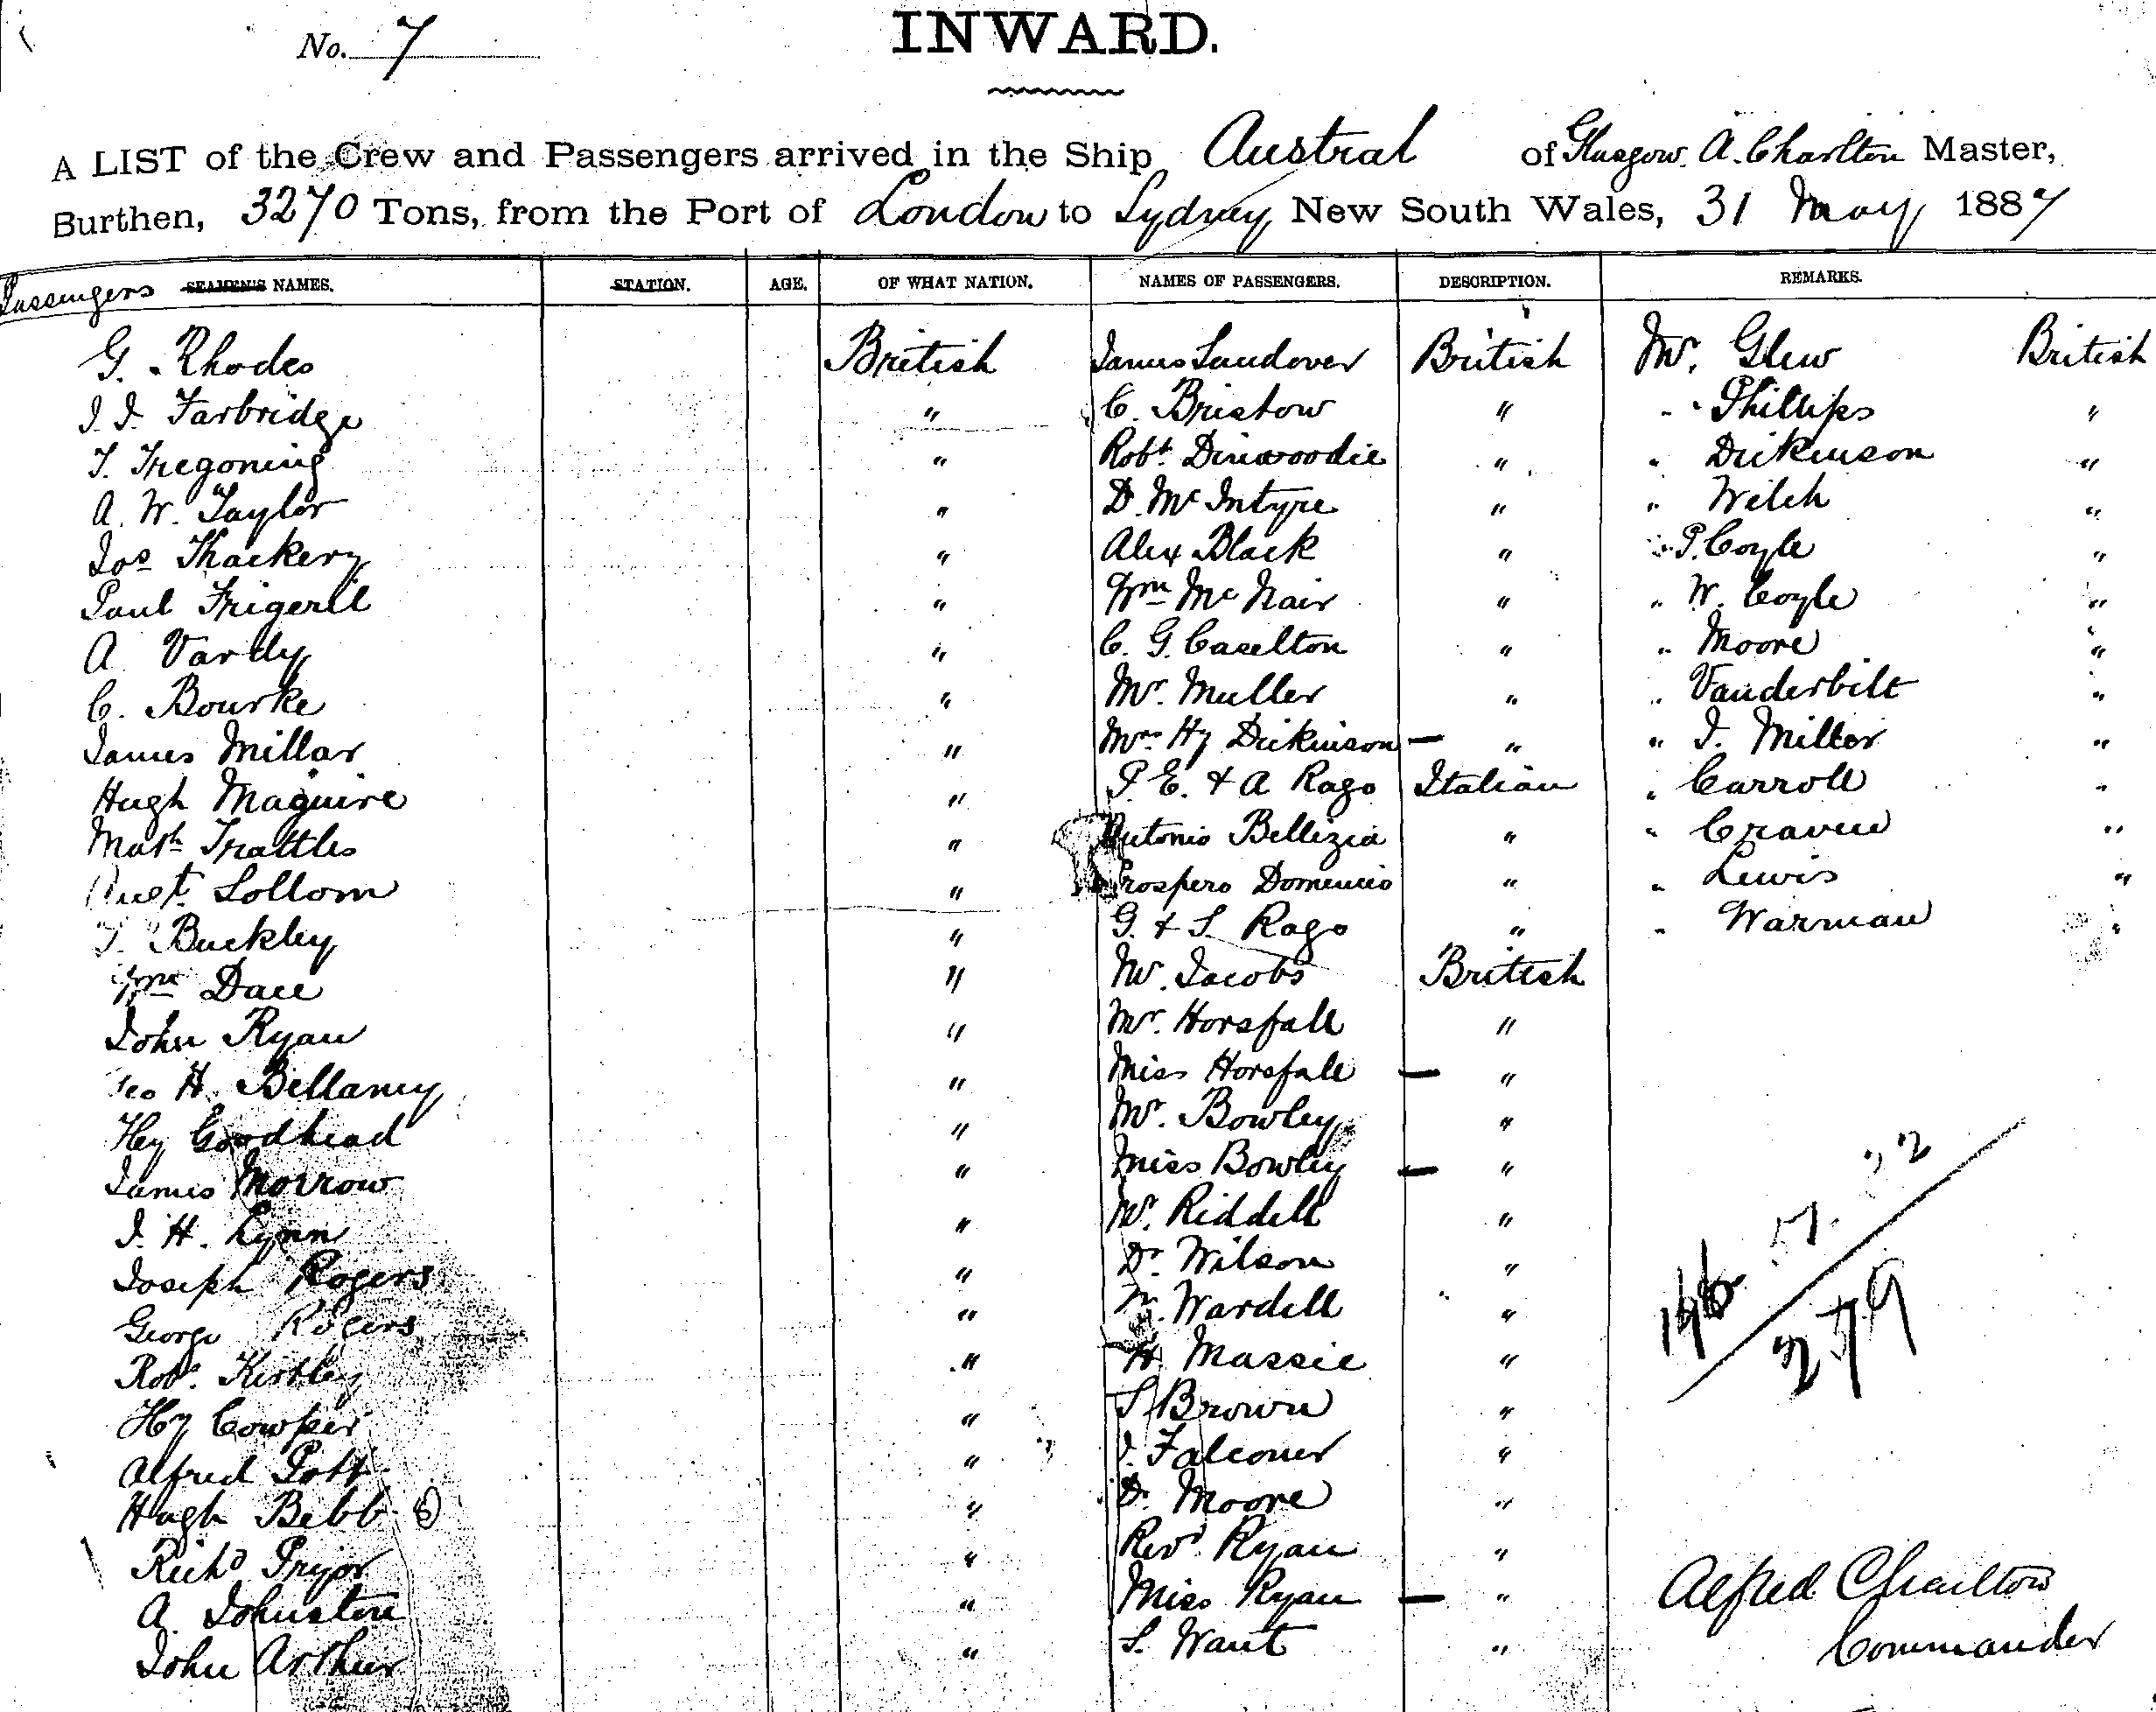 No. 7
INWARD.
A LIST of the Crew and Passengers arrived in the Ship Austral of Glasgow. A. Charlton Master,
Burthen, 3270 Tons, from the Port of London to Sydney, New South Wales, 31 May 1887
Passengers SEAMEN'S NAMES. STATION. AGE. OF WHAT NATION. NAMES OF PASSENGERS. DESCRIPTION. REMARKS.
G. Rhodes British James Sandover British Mr. Glew British
J. J. Farbridge " C. Bristow " " Phillips "
T. Tregoning " Robt. Dinwoodie " " Dickinson "
A. W. Taylor " D. McIntyre " " Welch "
Jos Thackery " Alex Black " " P. Coyle "
Paul " Wm McNair " " W. Coyle "
A. Vardy " C. G. Caselton " " Moore "
C. Bourke " Mr. Muller " " Vanderbilt "
James Millar " Mrs Hy Dickinson — " " J. Miller "
Hugh Maguire " P. E. & A Rago Italian " Carroll "
Matth Trattles " Antonio Bellizia " " Craven "
Lollom " Prospero Domenico " " Lewis "
T. Buckley " G. & S. Rago " " Warman "
Wm Dace " Mr. Jacobs British
John Ryan " Mr. Horsfall "
Geo H. Bellamy " Miss Horsfall — "
Hy Goodhead " Mr. Bowley "
James Morrow " Miss Bowley — "
J. H. Lynn " Mr. Riddell "
Joseph Rogers " Dr. Wilson "
George Rogers " Wardell "
Robt. Kirtley " H. Massie "
Hy Cowper " S. Brown "
Alfred Pott " J. Falconer "
Hugh Bebb " D. Moore "
Richd Pryor " Revd. Ryan "
A. Johnstone " Miss Ryan — "
John Arthur " S. Want "
279
Alfred Charlton
Commander